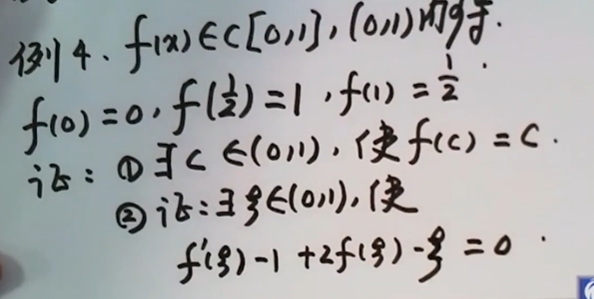 例4. f(x)∈C[0,1], (0,1)内可导.
f(0)=0, f(1/2)=1, f(1)=1/2.
证: ① ∃c∈(0,1), 使f(c)=c.
② 证: ∃ξ∈(0,1), 使
f'(ξ)-1+2f(ξ)-ξ=0.